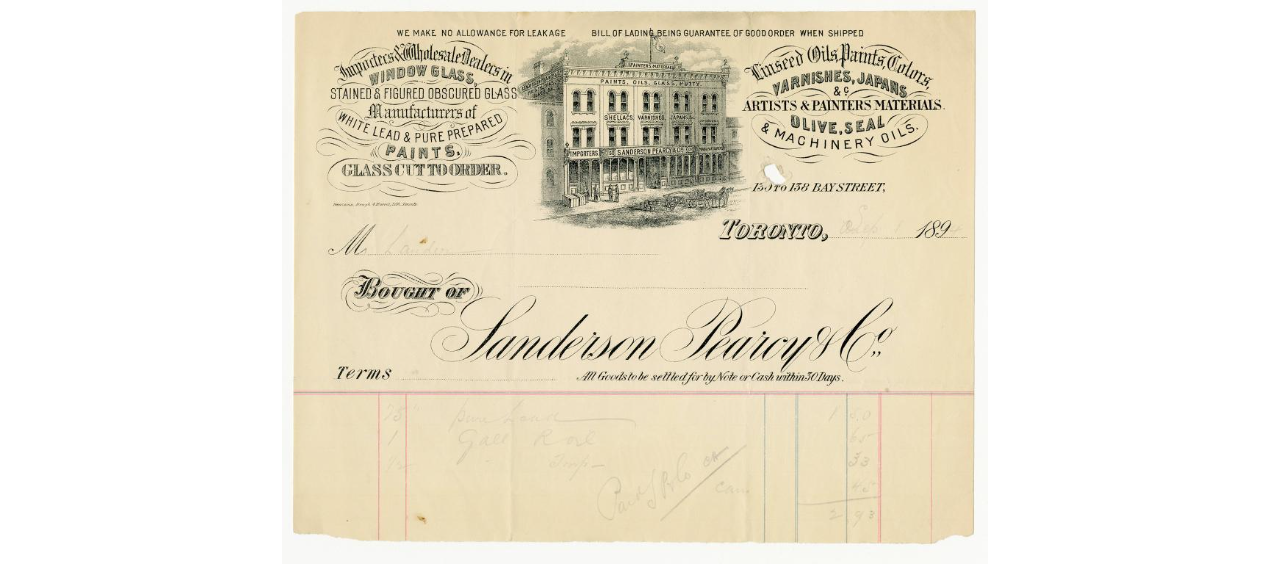 WE MAKE NO ALLOWANCE FOR LEAKAGE BILL OF LADING BEING GUARANTEE OF GOOD ORDER WHEN SHIPPED
Importers & Wholesale Dealers in
WINDOW GLASS,
STAINED & FIGURED OBSCURED GLASS
Manufacturers of
WHITE LEAD & PURE PREPARED
PAINTS.
GLASS CUT TO ORDER.
PAINTS, OILS, GLASS, PUTTY.
SHELLACS, VARNISHES, JAPANS,
IMPORTERS SANDERSON PEARCY & CO
Linseed Oils, Paints, Colors,
VARNISHES, JAPANS
&c
ARTISTS & PAINTERS MATERIALS.
OLIVE, SEAL
& MACHINERY OILS.
TO 158 BAY STREET,
TORONTO, Sep 1 189
M
BOUGHT OF
Sanderson Pearcy & Co.,
Terms All Goods to be settled for by Note or Cash within 30 Days.
25 1 50
1 Gall 60
1/2 33
Paid can 45
2 98